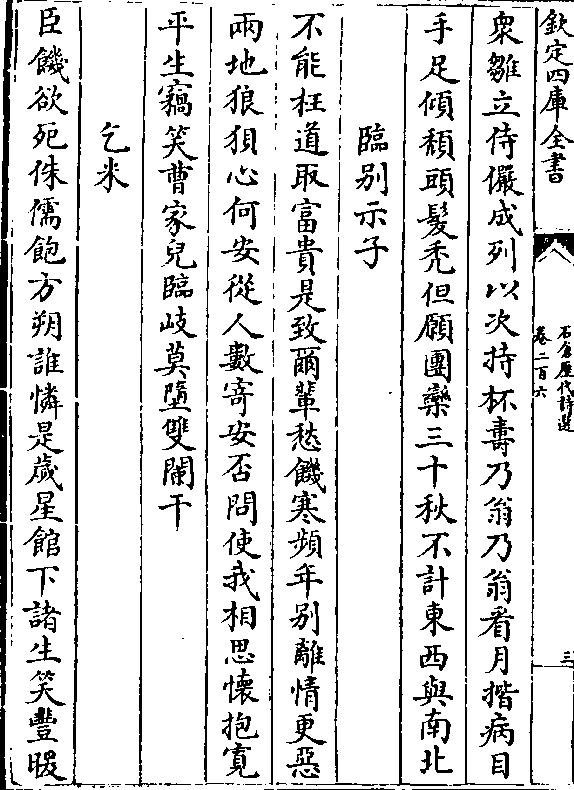 欽定四庫全書
石倉歷代詩選
卷二百六
三
衆雛立侍儼成列以次持杯壽乃翁乃翁看月揩病目
手足傾頹頭髮禿但願團欒三十秋不計東西與南北
臨别示子
不能枉道取富貴是致爾輩愁饑寒頻年别離情更惡
兩地狼狽心何安從人數寄安否問使我相思懷抱寛
平生竊笑曹家兒臨岐莫墮雙闌干
乞米
臣饑欲死侏儒飽方朔誰憐是歲星館下諸生笑豐暖